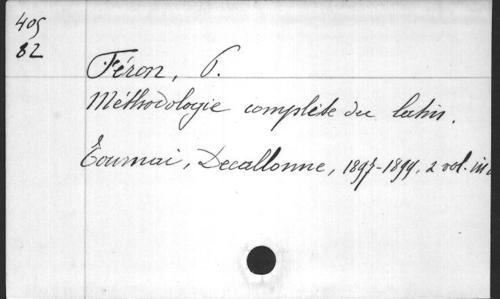 405
82
Féron, P.
Méthodologie complète du latin.
Tournai, Decallonne, 1897-1899. 2 vol. in